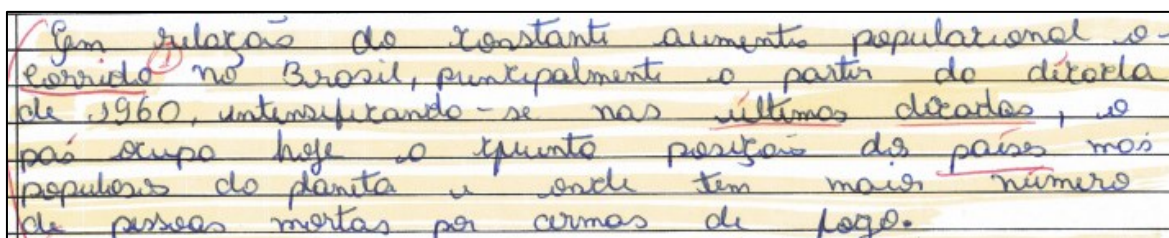 Em relação do constante aumento populacional o-
corrido no Brasil, principalmente a partir da década
de 1960, intensificando-se nas últimas décadas, o
país ocupa hoje a quinta posição dos países mas
populosos do planeta e onde tem maior número
de pessoas mortas por armas de fogo.